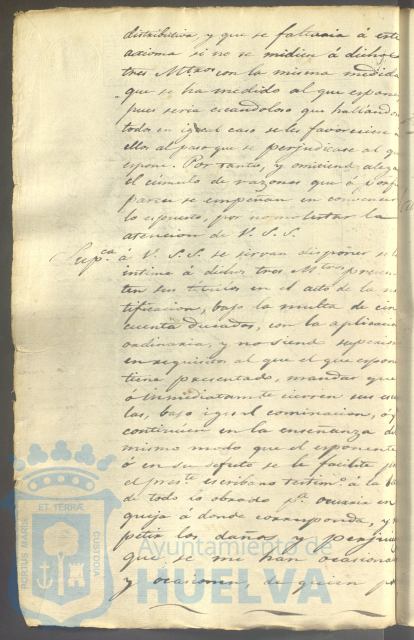 distributiva, y que se faltaria á este
axioma si no se midien á dichos
tres Mtros con la misma medida
que se ha medido al que espone
pues seria escandoloso que hallándo
todos en igual caso se les favoreciese
ellos al paso que se perjudicase al q
espone. Por tanto, y omitiend alega
el cúmulo de razones que á
parece se empeñan en convencer
lo espuesto, por no molestar la
atencion de V. S. S.
Supca á V. S. S. se sirvan disponer se
intime á dichos tres Mtros presen
ten sus titulos en el acto de la no
tificacion, bajo la multa de cin
cuenta ducados, con la aplicacio
ordinaria, y no siend superior
en requisitos al que el que espon
tiene presentado, mandar que
ó inmediatamte cierren sus escu
las, bajo igual cominacion, ó q
continúen en la enseñanza de
mismo modo que el esponente
ó en su defecto se le facilite p
el preste escribano testimo á la
de todo lo obrado pa ocurrir en
queja á donde corresponda, y
petir los daños y perjui
que se me han ocasiona
y ocasionen, de quien
PORTUS MARIS ET TERRÆ CUSTODIA
Ayuntamiento de
HUELVA